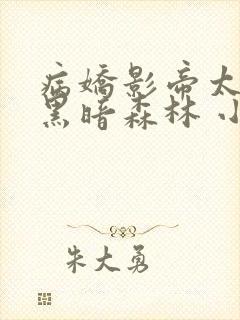 病嬌影帝太
黑暗森林 小
朱大勇